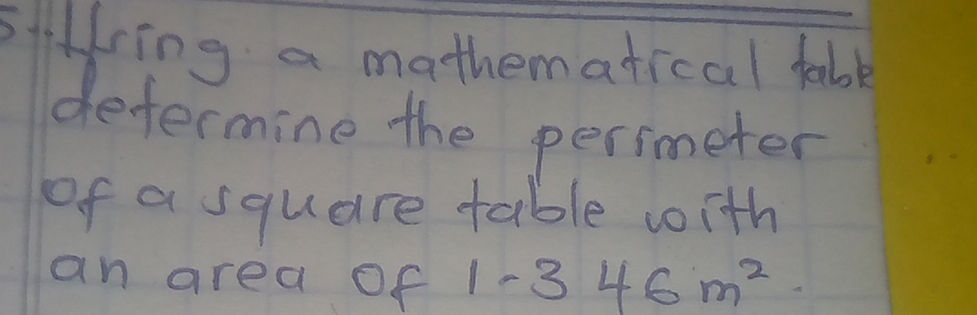 5. Using a mathematical table
determine the perimeter
of a square table with
an area of 1.346m².